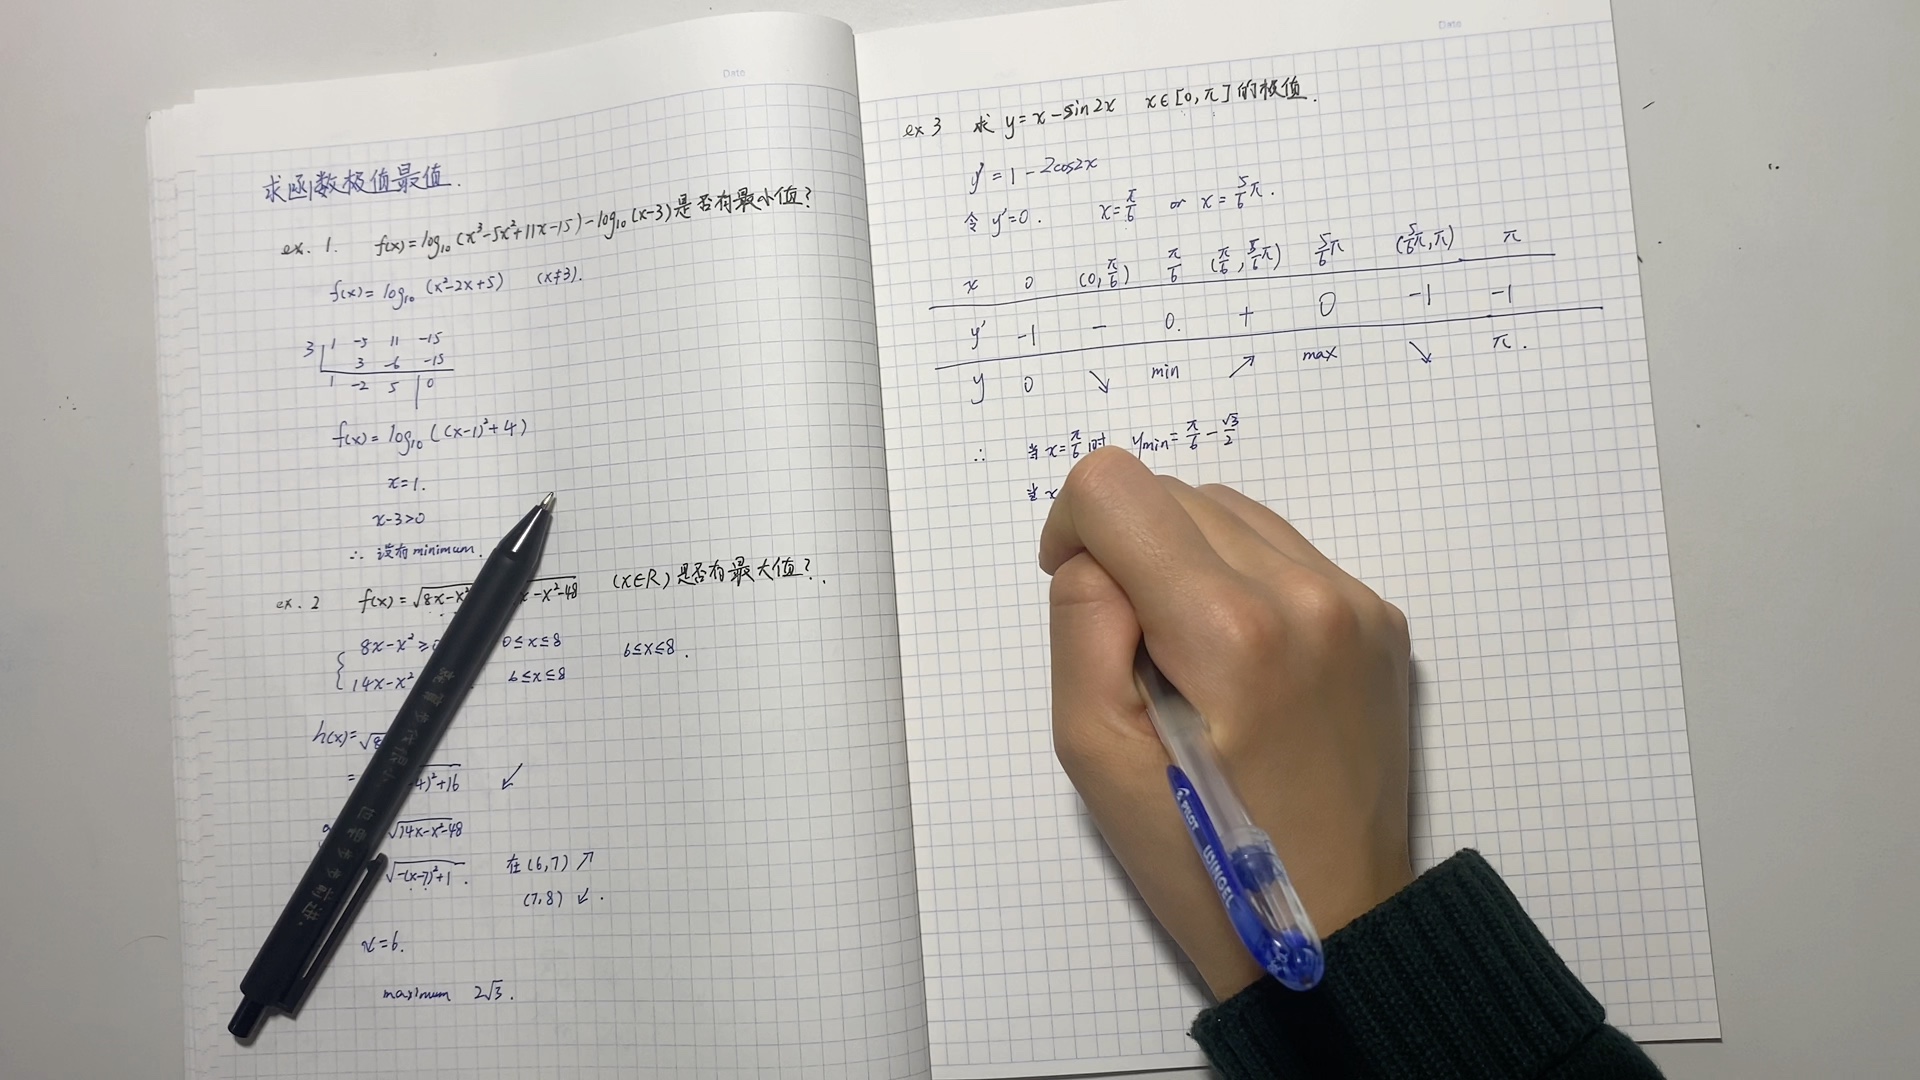 Date
求函数极值最值.
ex. 1. f(x)=log₁₀(x³-5x²+11x-15)-log₁₀(x-3)是否有最小值?
f(x)=log₁₀(x²-2x+5) (x≠3).
3 1 -5 11 -15
3 -6 -15
1 -2 5 0
f(x)=log₁₀((x-1)²+4)
x=1.
x-3>0
∴ 没有minimum.
ex. 2 f(x)=√8x-x² x-x²-48 (x∈R)是否有最大值?
8x-x²≥ 0≤x≤8 6≤x≤8.
14x-x² 6≤x≤8
h(x)=√8
= 4)²+16 ↙
√14x-x²-48
√-(x-7)²+1. 在(6,7)↗
(7,8)↙.
x=6.
maximum 2√3.
Date
ex 3 求 y=x-sin2x x∈[0,π]的极值.
y'=1-2cos2x
令 y'=0. x=π/6 or x=5/6π.
x 0 (0,π/6) π/6 (π/6,5/6π) 5/6π (5/6π,π) π
y' -1 - 0. + 0 -1 -1
y 0 ↘ min ↗ max ↘ π.
∴ 当x=π/6时 ymin=π/6-√3/2
当x
越努力越
步步高进.
PILOT
WINGEL